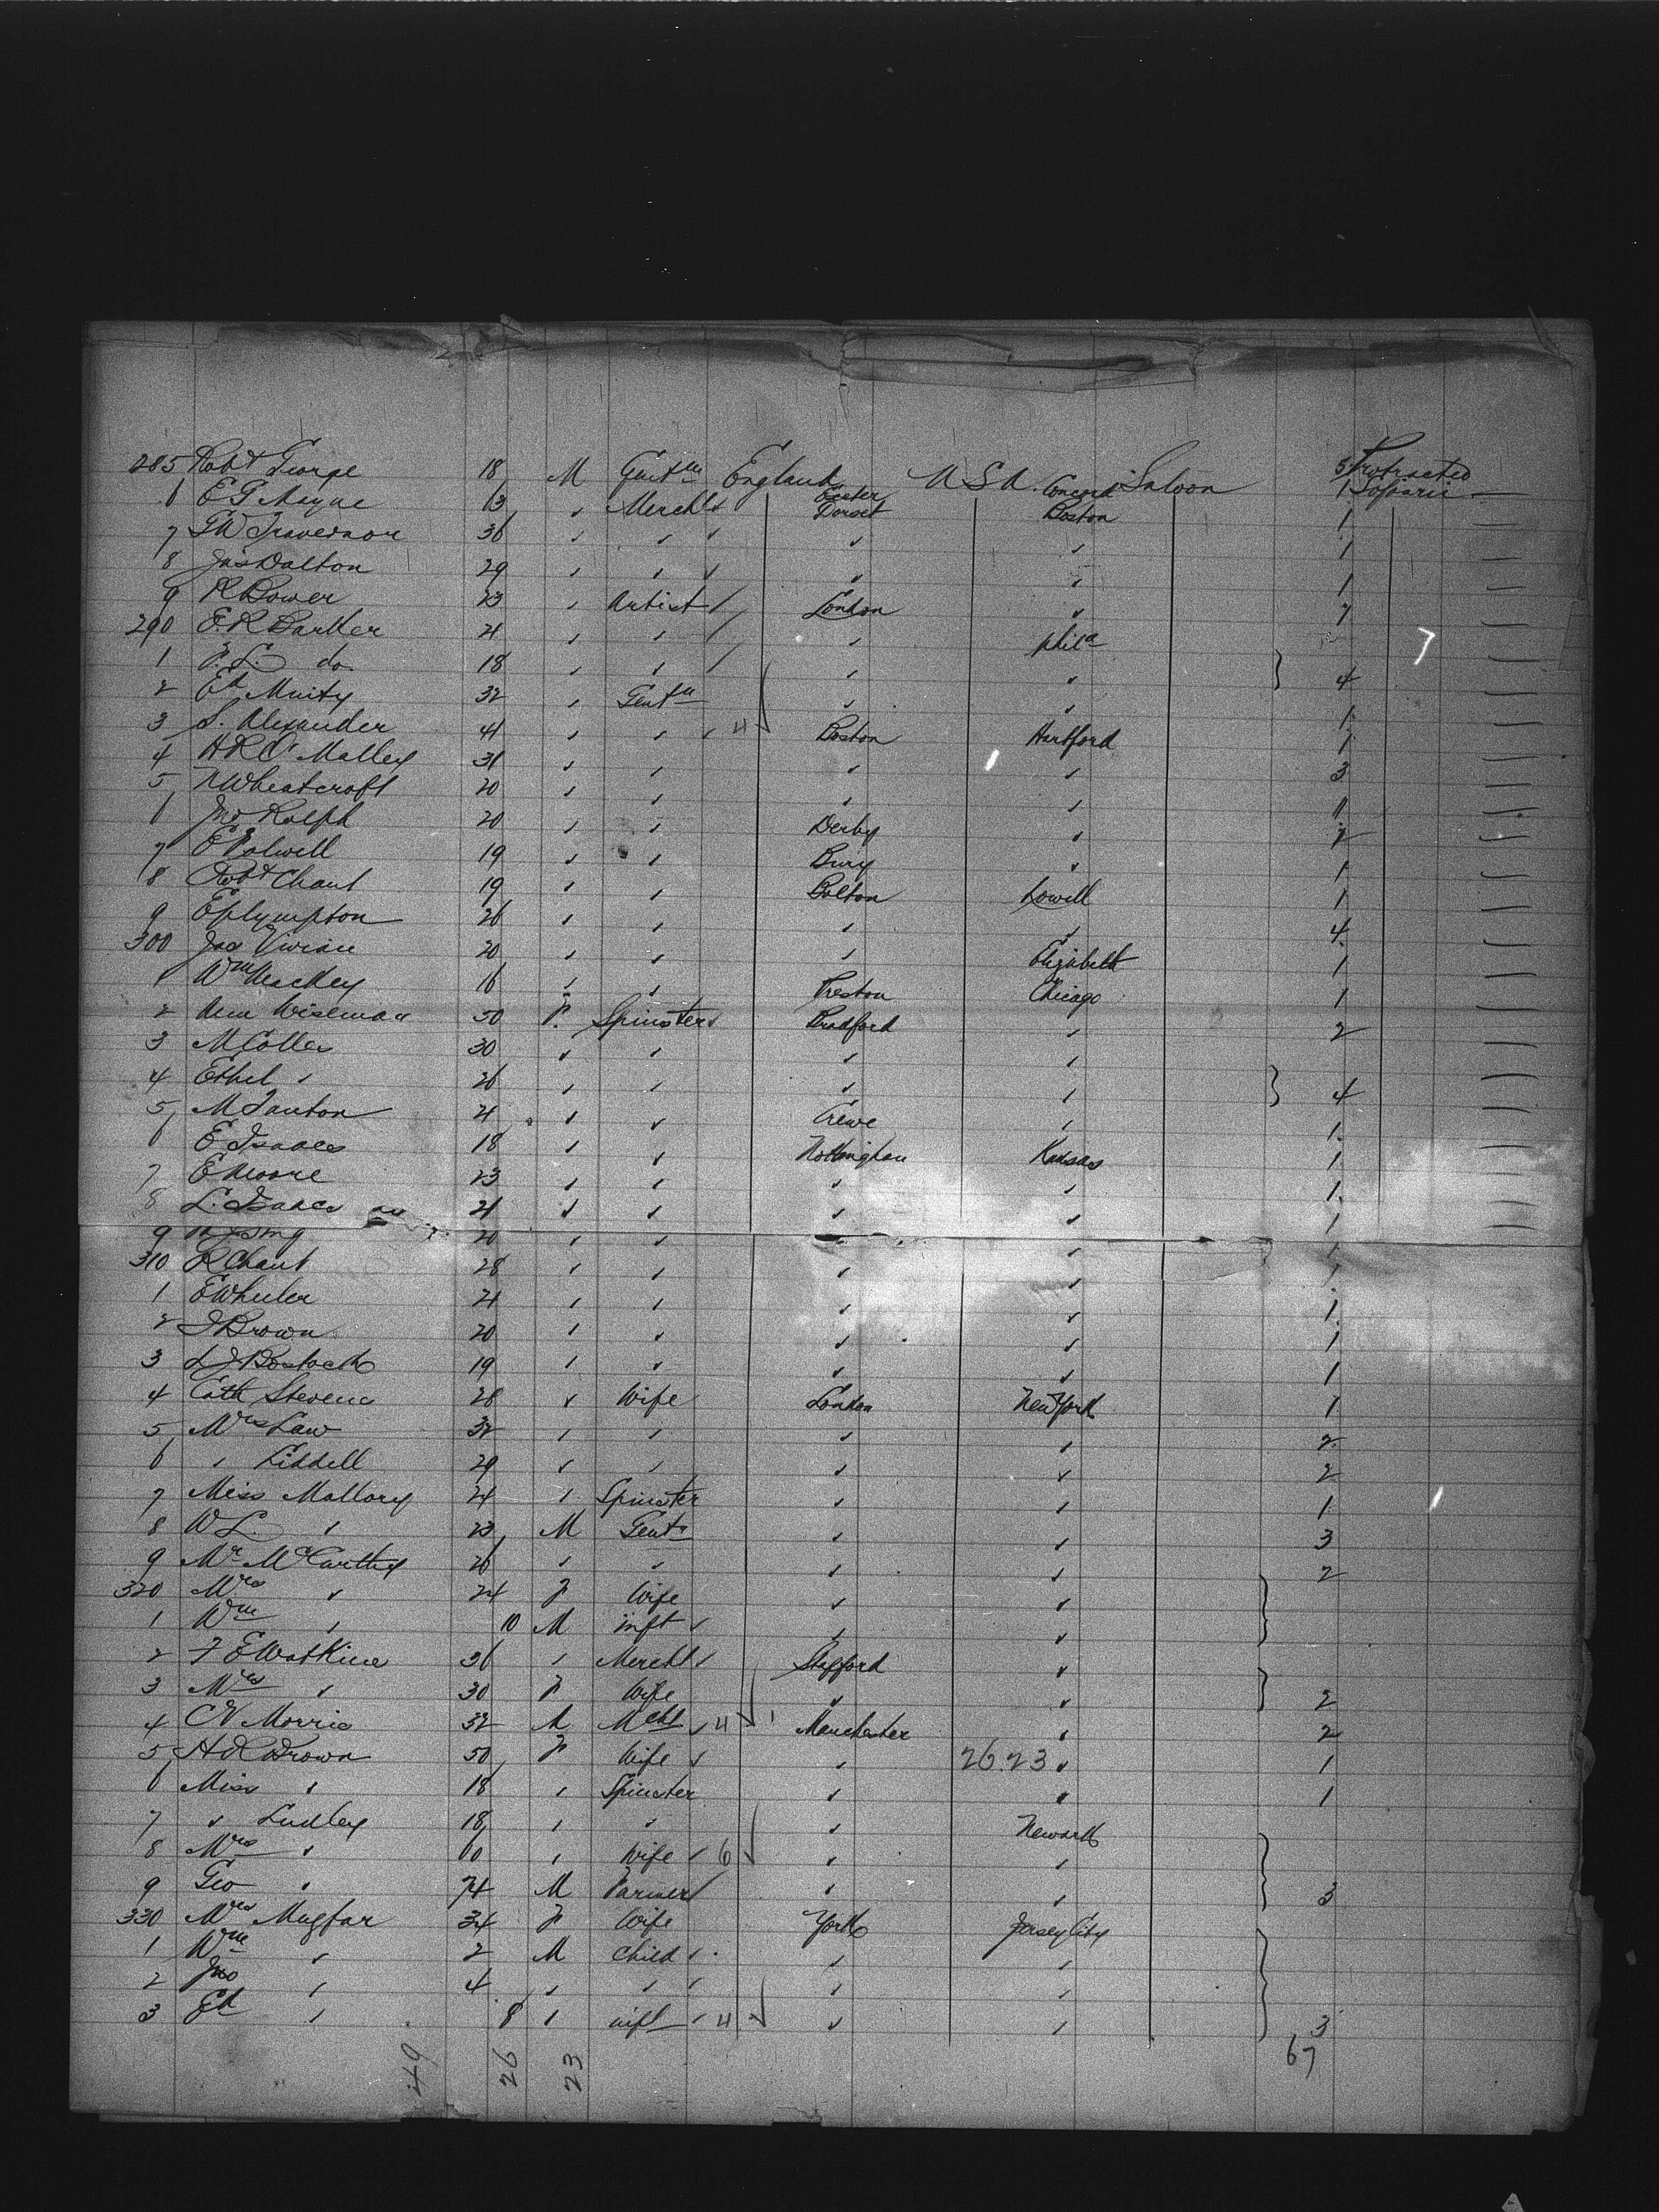 285 Robt George 18 M Gentm England Exeter U.S.A. Concord Saloon 5 Protracted
6 E G Mayne 13 " Mercht Dorset Boston 1 Sojourn
7 36 " " " " 1
8 Jas Dalton 29 " " " " 1
9 R Bower 23 " Artist London " 1
290 E. R Barker 21 " " " Phila 7
1 E. L. do 18 " " " " 4
2 Ed Muity 32 " Gentm " " 1
3 S. Alexander 41 " " 4 Boston Hartford 1
4 H R O'Malley 31 " " " " 3
5 Wheatcroft 20 " " " " 1
6 Jno Ralph 20 " " Derby " 2
7 E Polwell 19 " " Bury " 1
8 Robt Chant 19 " " Bolton Lowell 1
9 E Plympton 26 " " " " 4
300 Jas Vivian 20 " " " Elizabeth 1
1 Wm Mackey 16 " " Preston Chicago 1
2 Ann Wiseman 50 F. Spinster Bradford " 2
3 M Colles 30 " " " "
4 Ethel " 26 " " " " 4
5 M Tanton 21 " " Crewe " 1
6 E Isaacs 18 " " Nottingham Kansas 1
7 E Moore 23 " " " " 1
8 L. Isaacs 21 " " " " 1
9 20 " " " " 1
310 R Chant 28 " " " " 1
1 E Wheeler 21 " " " " 1
2 J Brown 20 " " " " 1
3 L J Bostock 19 " " " " 1
4 Cath Stevens 28 " Wife London New York 1
5 Mrs Law 32 " " " " 2
6 " Liddell 29 " " " " 2
7 Miss Mallory 24 " Spinster " " 1
8 W L. " 23 M Gent " " 3
9 Mr McCarthy 26 " " " " 2
320 Mrs " 24 F Wife " "
1 Wm " 10 M inft " "
2 F E Watkins 36 " Mercht Stafford "
3 Mrs " 30 F Wife " " 2
4 C V Morris 32 M Mcht 4 Manchester " 2
5 H R Brown 50 F Wife " 26.23 " 1
6 Miss " 18 " Spinster " " 1
7 " Ludley 18 " " " Newark
8 Mrs " 60 " Wife 6 " "
9 Geo " 74 M Farmer " " 3
330 Mrs Mugfar 34 F Wife York Jersey City
1 Wm " 2 M Child " "
2 Jno " 4 " " " "
3 Ed " 8 " inft 4 " " 3
49 26 23 67